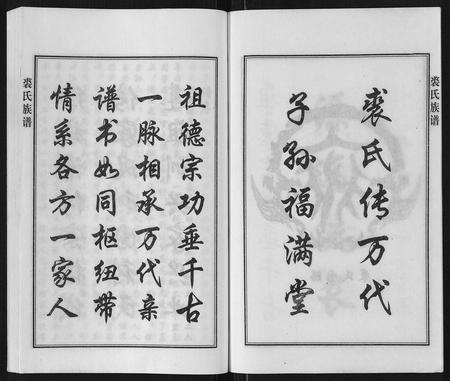 裘氏族谱
裘氏传万代
子孙福满堂
祖德宗功垂千古
一脉相承万代亲
谱书如同枢纽带
情系各方一家人
裘氏族谱